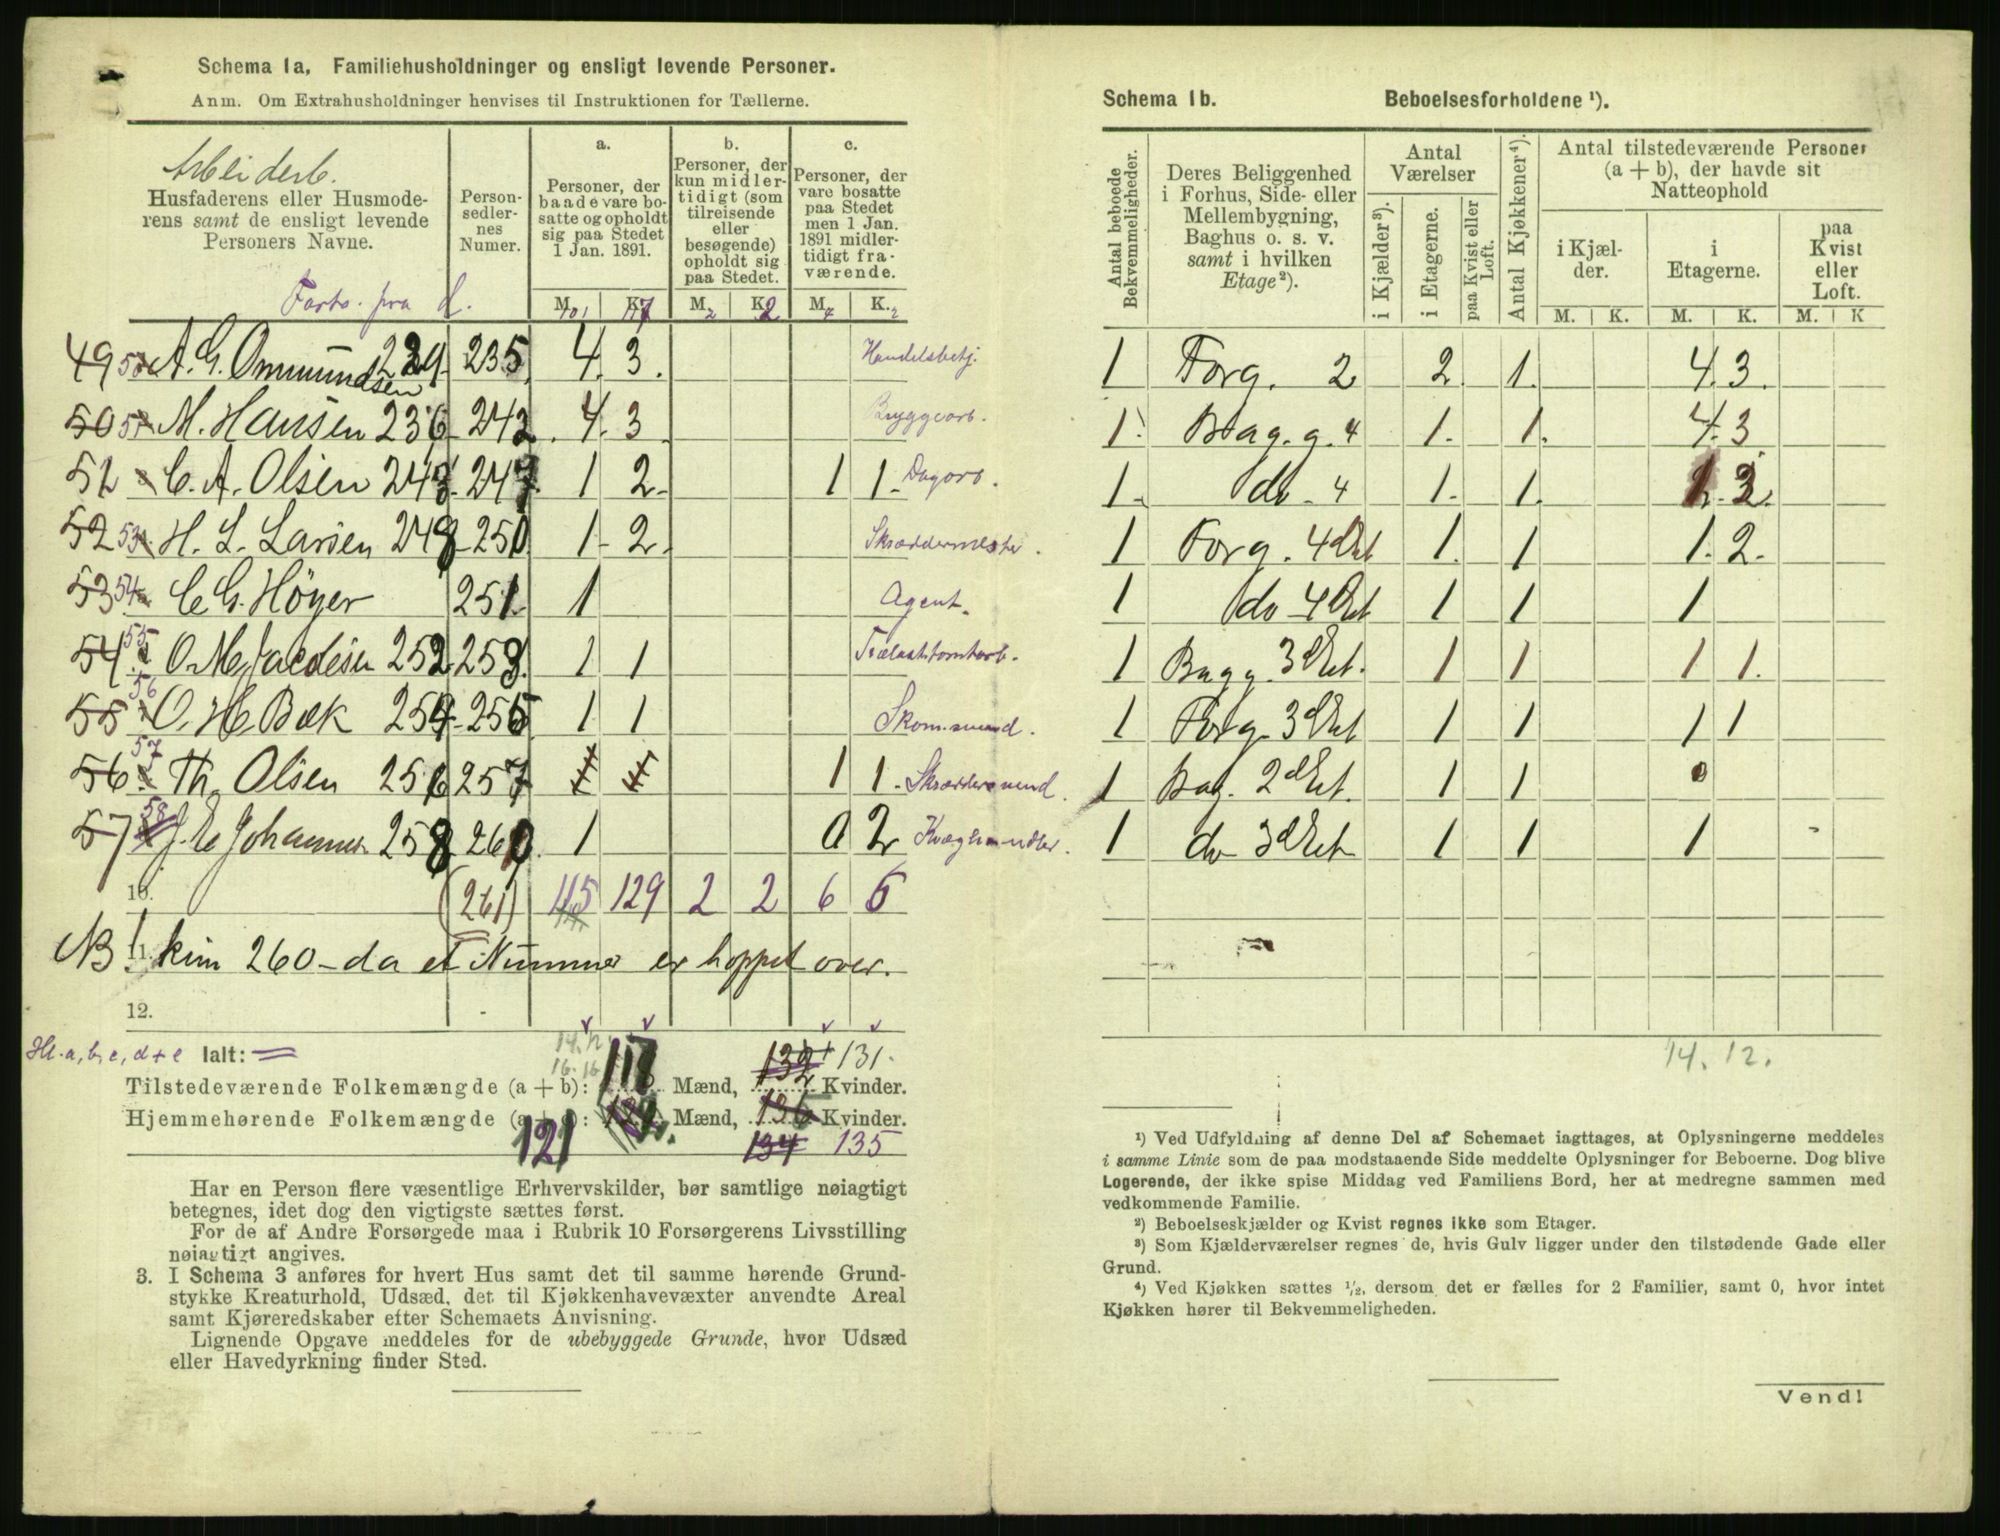 Schema 1a, Familiehusholdninger og ensligt levende Personer.
Anm. Om Extrahusholdninger henvises til Instruktionen for Tællerne.
Arbeiderb.
Husfaderens eller Husmoderens samt de ensligt levende Personers Navne.
Personsedlernes Numer.
a.
Personer, der baade vare bosatte og opholdt sig paa Stedet 1 Jan. 1891.
b.
Personer, der kun midlertidigt (som tilreisende eller besøgende) opholdt sig paa Stedet.
c.
Personer, der vare bosatte paa Stedet men 1 Jan. 1891 midlertidigt fraværende.
M. K. M. K. M. K.
Forts. fra d. 101 117 2 2 4 2
49 A. G. Ommundsen 229 - 235. 4. 3. Handelsbetj.
50 M. Hansen 236 - 242. 4. 3. Bryggearb.
51 C. A. Olsen 243 - 247. 1 2. 1 1. Dagarb.
52 53 H. L. Larsen 248 - 250. 1 2. Skræddermester.
53 54 C G. Höyer 251. 1 Agent.
54 55 O M. Jacobsen 252 - 253. 1 1 Trælasttomtarb.
55 56 O. H. Bæk 254 - 255. 1 1 Skom.svend.
56 57 Th. Olsen 256 257 1 1. Skræddersvend.
57 58 J. E Johannes. 258 260. 1 0 2 Kvæghandler.
10. (261) 115 129 2 2 6 6
NB! 11. kun 260 - da et Nummer er hoppet over.
12.
Hl. a, b, c, d + e Ialt: =
14. 12
16. 16
Tilstedeværende Folkemængde (a + b): 117 Mænd, 132 131. Kvinder.
Hjemmehørende Folkemængde (a + c): 121 Mænd, 136 Kvinder.
134 135
Har en Person flere væsentlige Erhvervskilder, bør samtlige nøiagtigt
betegnes, idet dog den vigtigste sættes først.
For de af Andre Forsørgede maa i Rubrik 10 Forsørgerens Livsstilling
nøiagtigt angives.
3. I Schema 3 anføres for hvert Hus samt det til samme hørende Grund-
stykke Kreaturhold, Udsæd, det til Kjøkkenhavevæxter anvendte Areal
samt Kjøreredskaber efter Schemaets Anvisning.
Lignende Opgave meddeles for de ubebyggede Grunde, hvor Udsæd
eller Havedyrkning finder Sted.
Schema 1b. Beboelsesforholdene ¹).
Antal beboede Bekvemmeligheder.
Deres Beliggenhed i Forhus, Side- eller Mellembygning, Baghus o. s. v. samt i hvilken Etage²).
Antal Værelser
i Kjælder³).
i Etagerne.
paa Kvist eller Loft.
Antal Kjøkkener⁴).
Antal tilstedeværende Personer (a + b), der havde sit Natteophold
i Kjælder.
i Etagerne.
paa Kvist eller Loft.
M. K. M. K. M. K
1 Forg. 2 2. 1. 4. 3.
1. Bag. g. 4 1. 1. 4. 3
1. do - 4 1. 1. 1. 2.
1 Forg. 4 Et 1. 1 1. 2.
1 do 4 Et 1 1 1
1 Bagg. 3 Et. 1 1 1 1.
1 Forg. 3 Et 1 1 1 1
1 Bag. 2 Et. 1 1 0
1 do 3 Et 1 1 1
14. 12.
¹) Ved Udfyldning af denne Del af Schemaet iagttages, at Oplysningerne meddeles
i samme Linie som de paa modstaaende Side meddelte Oplysninger for Beboerne. Dog blive
Logerende, der ikke spise Middag ved Familiens Bord, her at medregne sammen med
vedkommende Familie.
²) Beboelseskjælder og Kvist regnes ikke som Etager.
³) Som Kjælderværelser regnes de, hvis Gulv ligger under den tilstødende Gade eller
Grund.
⁴) Ved Kjøkken sættes ¹/₂, dersom det er fælles for 2 Familier, samt 0, hvor intet
Kjøkken hører til Bekvemmeligheden.
Vend!